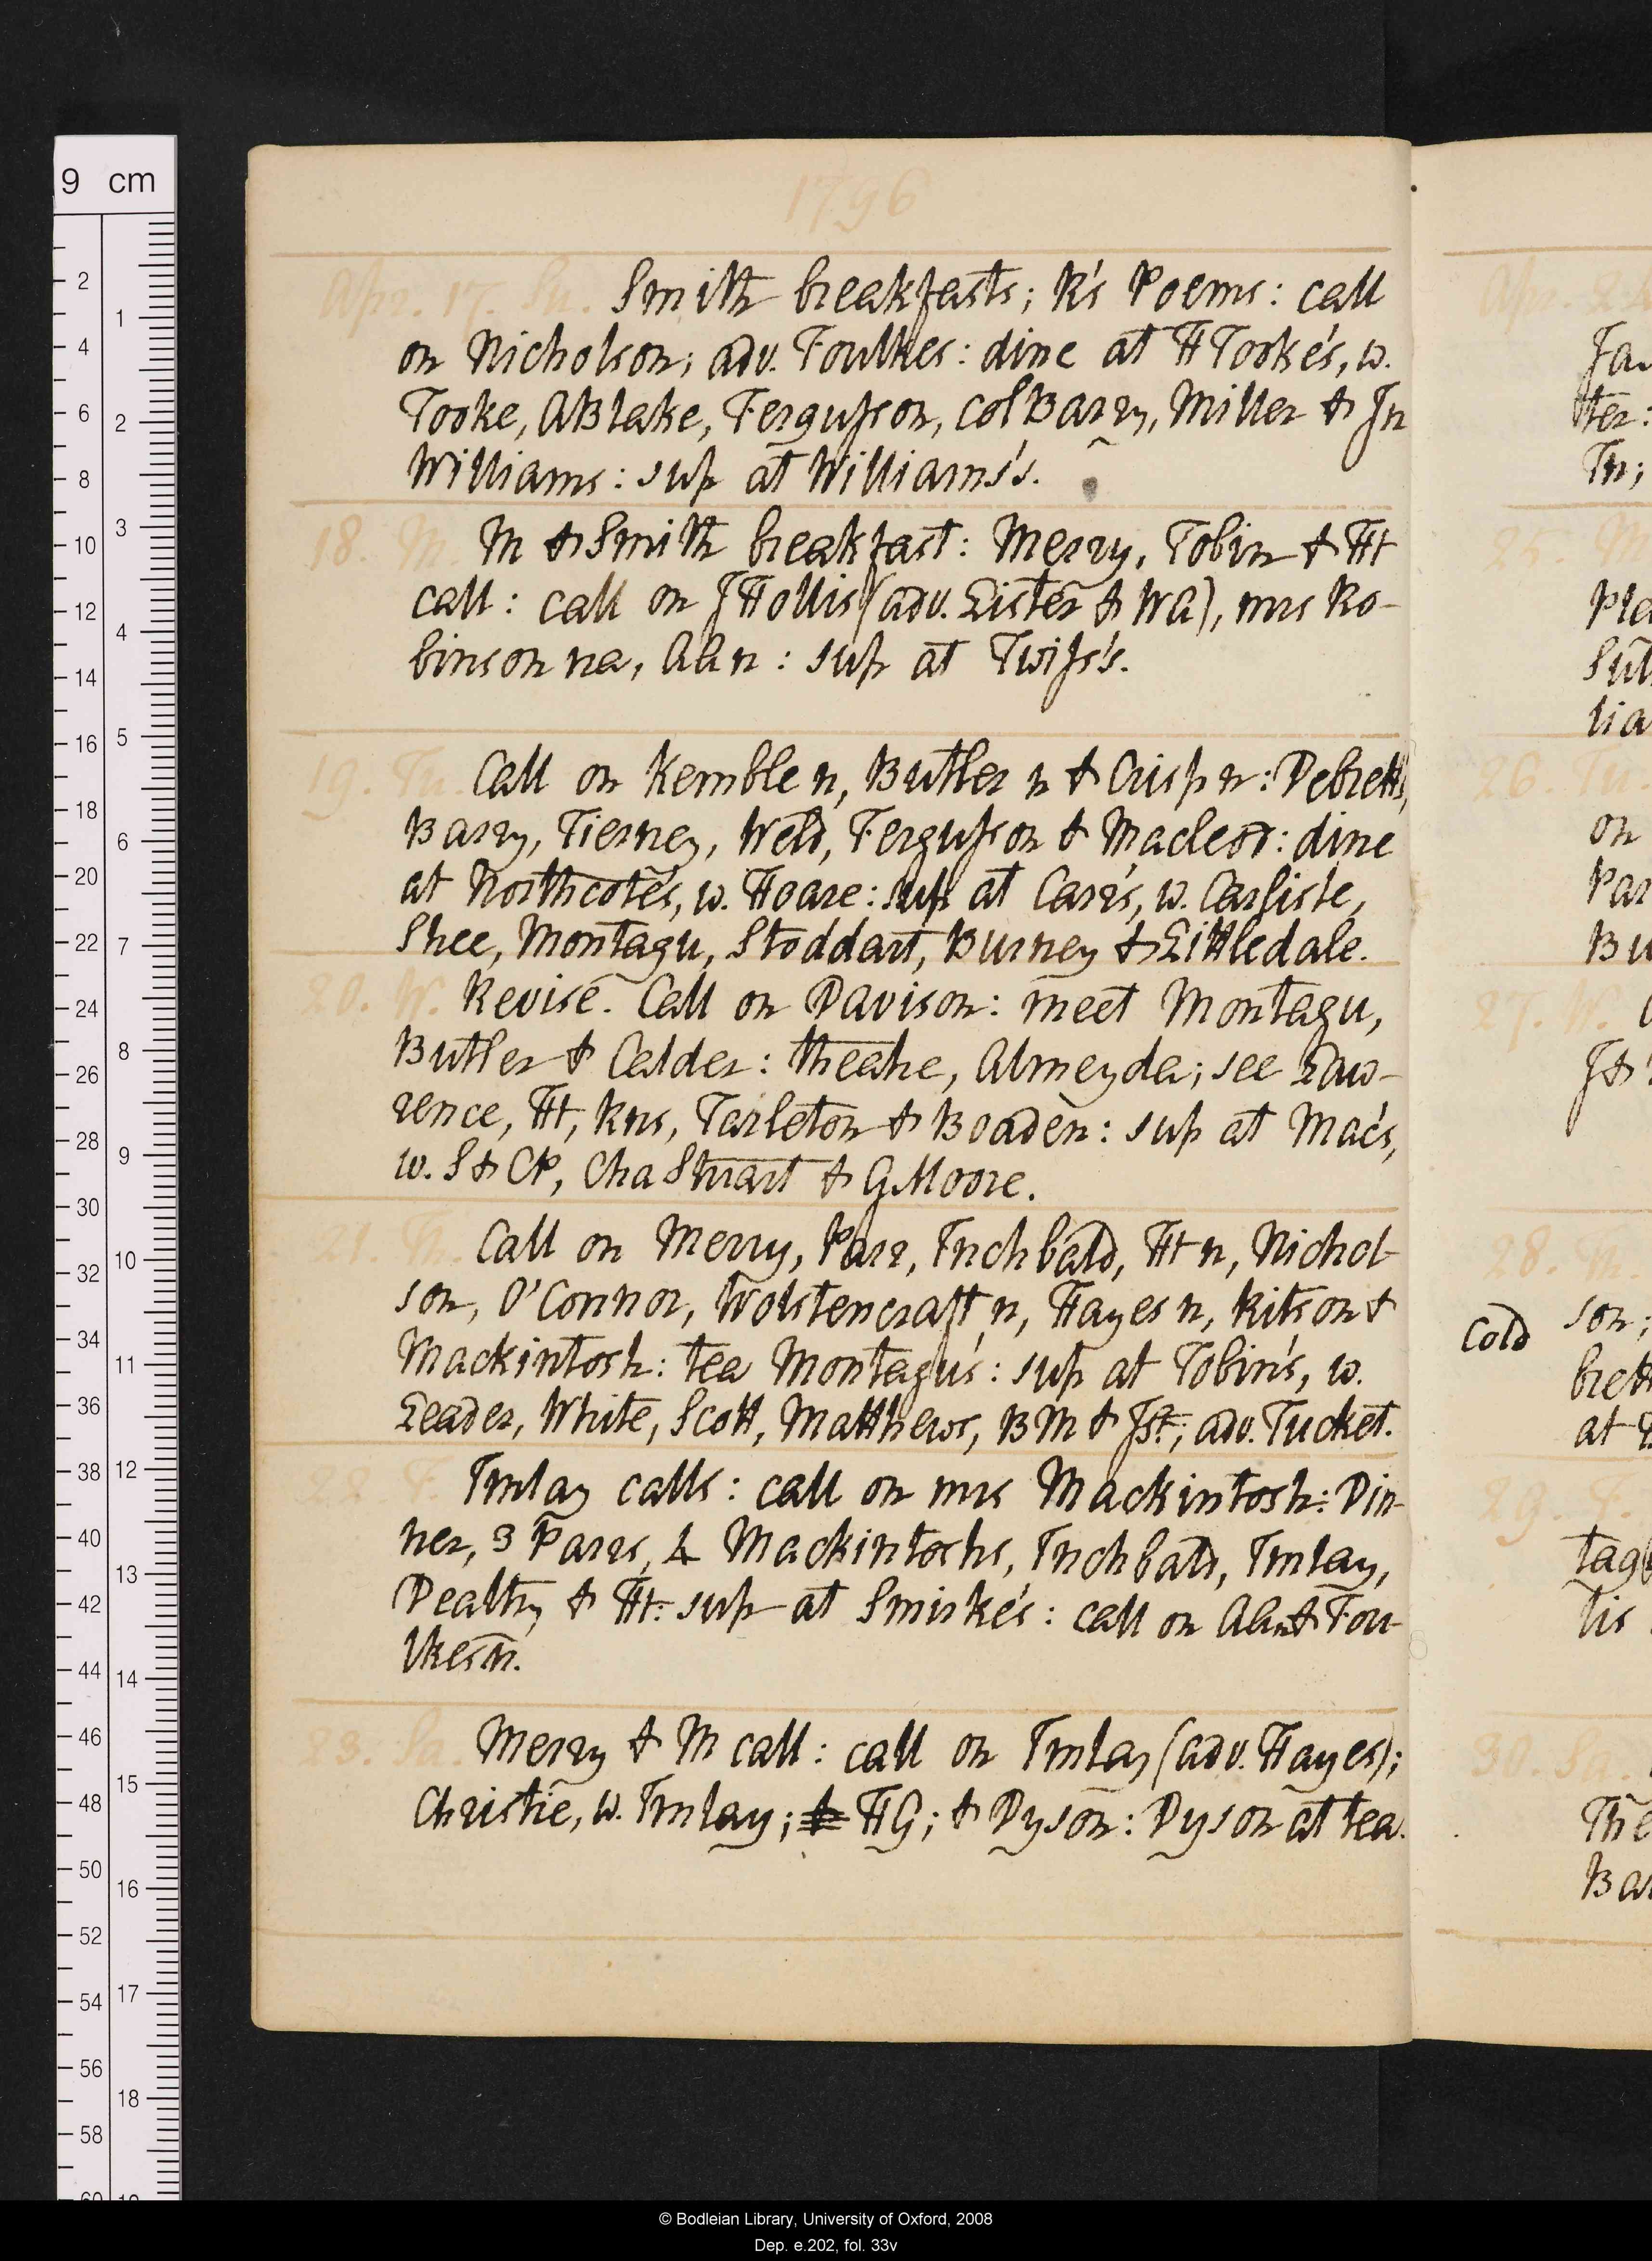 1796
Apr. 17. Su. Smith breakfasts; K's Poems: call
on Nicholson; adv. Foulkes: dine at H Tooke's, w.
Tooke, A Blake, Fergusson, col Barry, Miller & Jn
Williams: sup at Williams's.
18. M. M & Smith breakfast: Merry, Tobin & Ht
call: call on J Hollis (adv. Lister & WA), mrs Ro-
binson na, AA n: sup at Twiss's.
19. Tu. Call on Kemble n, Butler n & Crisp n: Debrett's,
Barry, Tierney, Weld, Fergusson & Macleod: dine
at Northcote's, w. Hoare: sup at Carr's, w. Carlisle,
Shee, Montagu, Stoddart, Burney & Littledale.
20. W. Revise. Call on Davison: meet Montagu,
Butler & Calder: theatre, Almeyda; see Law-
rence, Ht, Rns, Tarleton & Boaden: sup at Mac's,
w. S & CP, Cha Stuart & G Moore.
21. Th. Call on Merry, Parr, Inchbald, Ht n, Nichol-
son, O'Connor, Wolstencraft n, Hayes n, Kitson &
Mackintosh: tea Montagu's: sup at Tobin's, w.
Leader, White, Scott, Matthews, BM & Jst.; adv. Tucket.
22 F. Imlay calls: call on mrs Mackintosh: Din-
ner, 3 Parrs, 4 Mackintoshs, Inchbald, Imlay,
Dealtry & Ht: sup at Smirke's: call on AA n & Fou-
lkes n.
23. Sa. Merry & M call: call on Imlay (adv. Hayes);
Christie, w. Imlay; & HG; & Dyson: Dyson at tea.
Apr.
Ja
ter:
Tn;
25. M
Pla
Sut
lia
26. Tu.
on
Par
Bu
27. W.
J &
28. Th.
Cold son;
brett
at
29. F.
tag
lis
30. Sa.
The
Bar
9 cm
2
4
6
8
10
12
14
16
18
20
22
24
26
28
30
32
34
36
38
40
42
44
46
48
50
52
54
56
58
60
1
2
3
4
5
6
7
8
9
10
11
12
13
14
15
16
17
18
19
© Bodleian Library, University of Oxford, 2008
Dep. e.202, fol. 33v